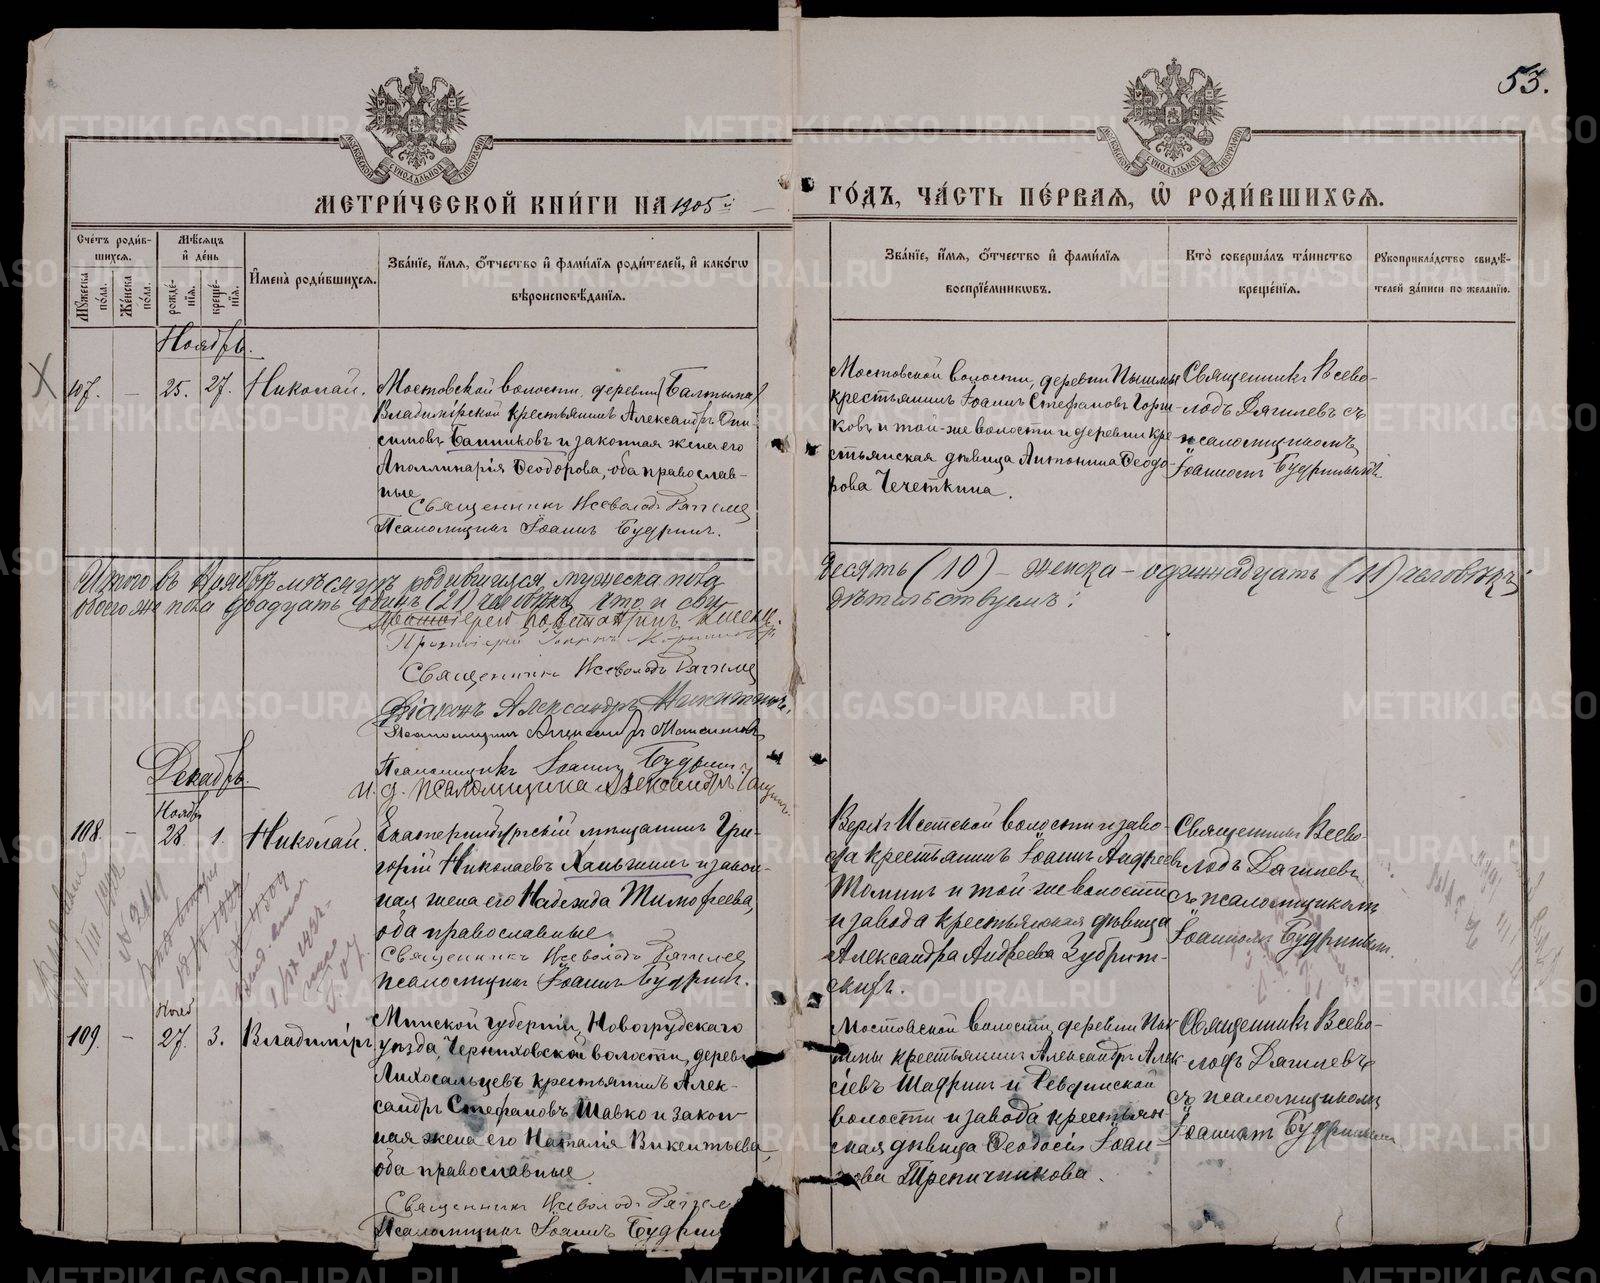 53.
МОСКОВСКОЙ СИНОДАЛЬНОЙ ТИПОГРАФІИ
МЕТРИ́ЧЕСКОЙ КНИ́ГИ НА 1905 й
ГО́ДЪ, ЧА́СТЬ ПЕ́РВАЯ, Ѡ РОДИ́ВШИХСЯ.
Счетъ роди́в-
шихся.
Мужеска по́ла.
Же́нска по́ла.
Мѣ́сяцъ
и҆ де́нь
рожде́-
нїя.
креще́-
нїя.
И҆мена̀ роди́вшихся.
Зва́нїе, и҆́мя, ѻ҆́тчество и҆ фами́лїя роди́телей, и҆ како́гѡ
вѣроисповѣ́данїя.
Зва́нїе, и҆́мя, ѻ҆́тчество и҆ фами́лїя
воспрїе́мникѡвъ.
Кто̀ соверша́лъ та́инство
креще́нїя.
Рукоприкла́дство свидѣ́-
телей за́писи по жела́нїю.
Ноябрь.
107. — 25. 27. Николай.
Мостовской волости, деревни (Балтыма)
Владимірской крестьянинъ Александръ Они-
симовъ Банниковъ и законная жена его
Аполлинарія Ѳеодорова, оба православ-
ные
Священникъ Всеволодъ Дягилев
Псаломщикъ Іоаннъ Будринъ.
Мостовской волости, деревни Пышмы
крестьянинъ Іоаннъ Стефановъ Горш-
ковъ и той-же волости и деревни кре-
стьянская дѣвица Антонина Ѳеодо-
рова Чечеткина.
Священникъ Всево-
лодъ Дягилевъ съ
псаломщикомъ
Іоанномъ Будринымъ
Итого въ Ноябрѣ мѣсяцѣ родившихся мужеска пола
десять (10) — женска — одиннадцать (11) человѣкъ,
обоего же пола двадцать одинъ (21) человѣкъ, что и сви
дѣтельствуемъ:
Протоіерей Іоаннъ
Священникъ Всеволодъ Дягилев
Діаконъ Александръ
Псаломщикъ Александръ
Псаломщикъ Іоаннъ Будринъ
и. д. псаломщика Александръ
Декабрь.
Ноябр
108. — 28. 1. Николай.
Екатеринбургскій мѣщанинъ Гри-
горій Николаевъ Ханьжинъ и закон-
ная жена его Надежда Тимофеева,
оба православные
Священникъ Всеволодъ Дягилев
Псаломщикъ Іоаннъ Будринъ.
Верхъ Исетской волости и заво-
да крестьянинъ Іоаннъ Андреевъ
Томинъ и той же волости
и завода крестьянская дѣвица
Александра Андреева Зубрит-
скихъ.
Священникъ Всево-
лодъ Дягилевъ
съ псаломщикомъ
Іоанномъ Будринымъ.
Нояб
109. — 27. 3. Владиміръ
Минской губерніи, Новогрудскаго
уѣзда, Черниховской волости, дерев
Лихосальцевъ крестьянинъ Алек-
сандръ Стефановъ Шавко и закон-
ная жена его Наталія Викентьева,
оба православные.
Священникъ Всеволодъ Дягилев
Псаломщикъ Іоаннъ Будрин
Мостовской волости, деревни Пыш
мины крестьянинъ Александръ Алек
сіевъ Шадринъ и Ревдинской
волости и завода крестьян-
ская дѣвица Ѳеодосія Іоан-
нова Трепичникова.
Священникъ Всево-
лодъ Дягилевъ
съ псаломщикомъ
Іоанномъ Будринымъ
METRIKI.GASO-URAL.RU